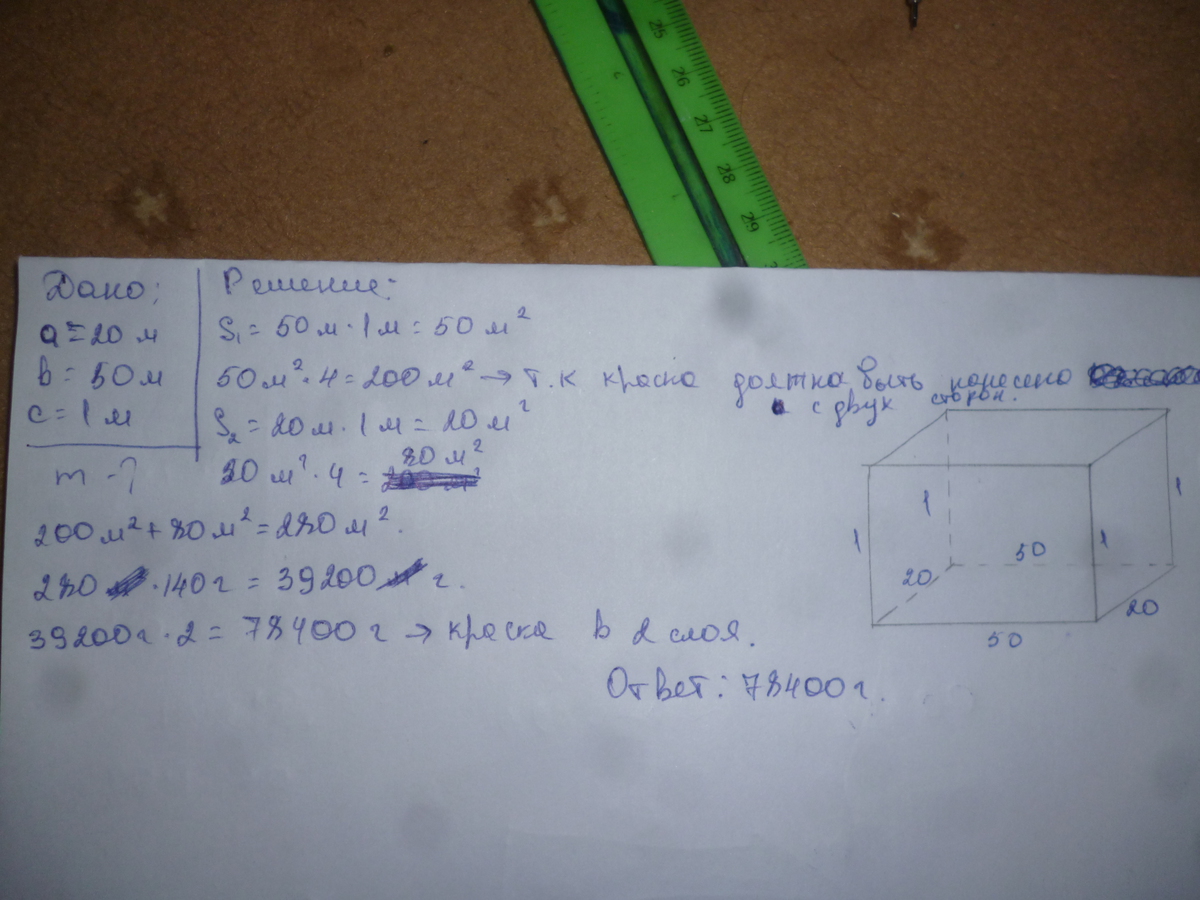 25
26
27
28
29
Дано:
a = 20 м
b = 50 м
c = 1 м
m - ?
Решение:
S₁ = 50 м · 1 м = 50 м²
50 м² · 4 = 200 м² → т.к краска должна быть нанесено
с двух сторон.
S₂ = 20 м · 1 м = 20 м²
20 м² · 4 = 80 м²
200 м² + 80 м² = 280 м².
280 · 140 г = 39200 г.
39200 г · 2 = 78400 г → краска в 2 слоя.
Ответ: 78400 г.
1
1
1
1
20
50
20
50